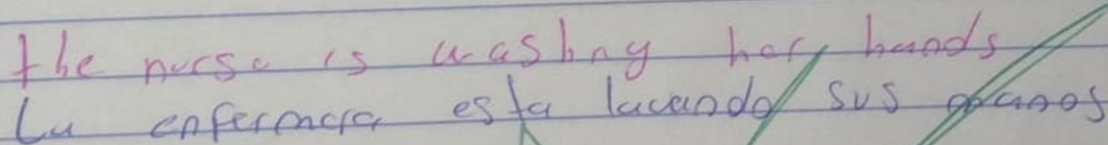 the nurse is washing her hands
La enfermera esta lavando sus manos